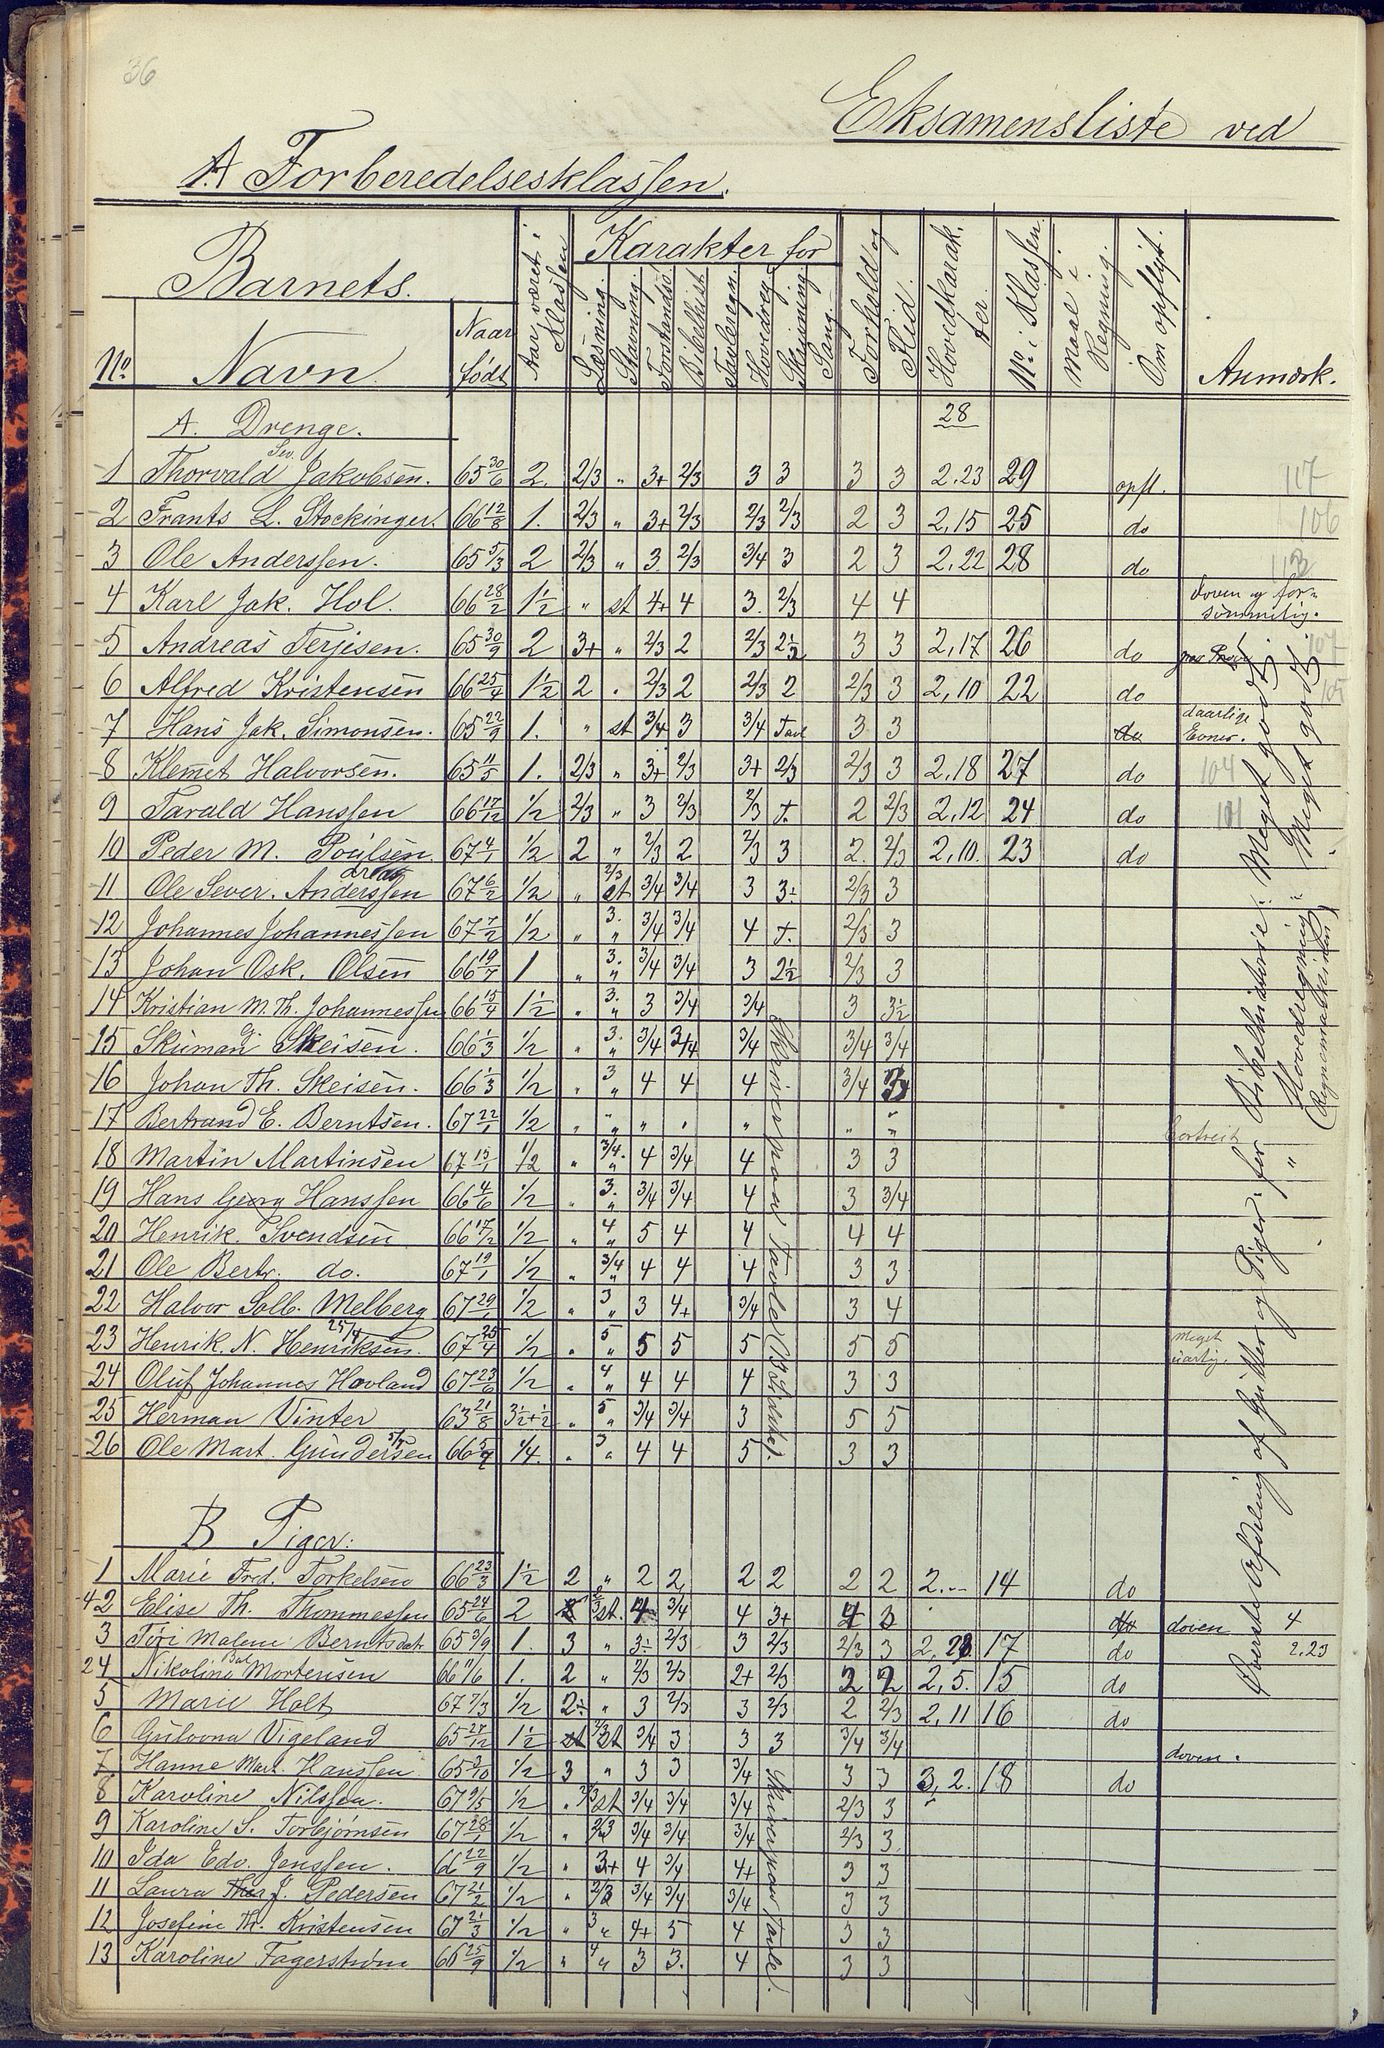 36
Eksamensliste ved
A Forberedelsesklassen.
Barnets.
No.
Navn
Naar født
Aar været i Klassen
Karakter for
Læsning.
Stavning.
Forstandsø.
Bibelhist.
Tavleregn.
Hovedreg.
Skrivning
Sang.
Forhold og
Flid.
Hovedkarakter.
No. i Klassen.
Maal i Regning.
Om opflyt.
Anmærk.
A. Drenge. 28
1 Thorvald Sev. Jakobsen. 65 30/6 2. 2/3 " 3+ 2/3 3 3 3 3 2,23 29 opfl. 117
2 Frants L. Stockinger. 66 12/8 1. 2/3 " 3+ 2/3 2/3 2/3 2 3 2,15 25 do 106
3 Ole Anderssen. 65 5/3 2 2/3 " 3 2/3 3/4 3 2 3 2,22 28 do
4 Karl Jak. Hol. 66 28/2 1½ " st 4+ 4 3. 2/3 4 4 doven og forsømmelig.
5 Andreas Terjesen. 65 30/9 2 3+ " 2/3 2 2/3 2½ 3 3 2,17 26 do 107
6 Alfred Kristensen 66 25/4 1½ 2 " 2/3 2 2/3 2 2/3 3 2,10 22 do 105
7 Hans Jak. Simonsen. 65 22/9 1. " st 3/4 3 3/4 Tavl 3 3 do daarlige Evner.
8 Klemet Halvorsen. 65 11/5 1. 2/3 " 3+ 2/3 3+ 2/3 2/3 3 2,18 27 do 104
9 Tarald Hanssen 66 17/12 ½ 2/3 " 3 2/3 2/3 T. 2 2/3 2,12 24 do 101
10 Peder M. Poulsen 67 4/1 ½ 2 " 2/3 2 2/3 3 2. 2/3 2,10. 23 do
11 Ole Sever. Anderssen 67 6/2 ½ " 2/3 st 3/4 3/4 3 3÷ 2/3 3
12 Johannes Johannessen 67 7/2 ½ " 3. " 3/4 3/4 4 T. 2/3 3
13 Johan Osk. Olsen 66 19/7 1 " 3. " 3/4 3/4 3 2½ 2/3 3
14 Kristian M. Th. Johannessen 66 15/4 1½ " 3. " 3 3/4 3/4 3 3½
15 Skuman G. Skeisen. 66 1/3 ½ " 3. " 3/4 3/4 3/4 3/4 3/4
16 Johan Th. Skeisen. 66 1/3 ½ " 3 " 4 4 4 3/4
17 Bertrand E. Berntsen. 67 22/1 ½ " " " " " " " " Bortreist
18 Martin Martinsen 67 15/1 ½ " 3/4. " 4 3/4 4 3 3
19 Hans Georg Hanssen 66 4/6 ½ " 3. " 3/4 3/4 4 3 3/4
20 Henrik Svendsen 66 17/2 ½ " 4 " 5 4 4 4 4
21 Ole Bertr. do. 67 19/1 ½ " 3/4 " 4 4 4 3 3
22 Halvor Solb. Melberg 67 29/1 ½ " 3 " 3 4+ 3/4 3 4
23 Henrik N. Henriksen 25/4 67 25/4 ½ " 5 " 5 5 5 5 5 Meget uartig.
24 Oluf Johannes Hovland 67 23/6 ½ " 4 " 4 4 4 3 3
25 Herman Vinter 63 21/8 3½+½ " 5 " 3/4 3/4 3 5 5
26 Ole Mart. Gundersen 66 5/9 ¼. " 3 " 4 4 5 3 3
Skriver paa Tavle (Bogstaver).
B Piger:
1 Marie Fred. Torkelsen 66 23/3 1½ 2 " 2 2 2 2 2 2 2.-- 14 do
42 Elise Th. Thommessen 65 24/6 2 2/3 st. 4 3/4 4 3+ 4 3 do doven 4
3 Tori Malene Berntsdtr 65 3/9 1. 3 " 3÷ 2/3 3 2/3 2/3 3 2,23 17 do 2.23
24 Nikoline Bal Mortensen 66 11/6 1. 2 " 2/3 2/3 2+ 2/3 2 2 2,5. 15 do
5 Marie Holt 67 7/3 ½ 2÷ " 3 2/3 3 2/3 2 2/3 2,11 16 do
6 Gulovna Vigeland 65 27/12 1½ st 2/3 st 3/4 3 3 3 3/4 3/4 doven.
7 Hanne Mart. Hanssen 65 3/10 ½ 3 " 3 3 3/4 3 3 3,2. 18 do
8 Karoline Nilssen. 67 9/5 ½ " 2/3 st 3/4 3/4 3/4 2/3 3
9 Karoline S. Torbjørnsen 67 28/1 ½ " 2/3 3/4 3/4 3/4 2/3 3
10 Ida Edv. Jenssen. 66 22/9 ½ " 3+ 4 3/4 4+ 3 3
11 Laura Thea J. Pedersen 67 21/2 ½ " 2/3 3/4 3/4 3/4 3 3
12 Josefine Th. Kristensen 67 21/3 ½ " 3 " 4+ 5 4 3 3
13 Karoline Fagerstrøm 66 25/9 ½ " 4 " 3 3. 4 3 3
Skriver paa Tavle.
Øverste Afdeling af Gutter og Piger: for Bibelhistorie: Meget godt.
" " Hovedregning: Meget godt
(Regnemaskinen)